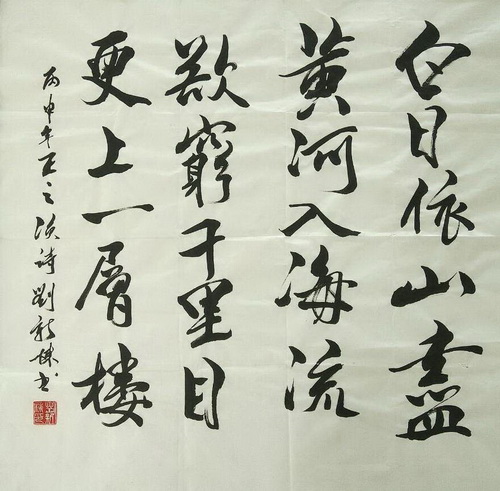 白日依山盡
黄河入海流
欲窮千里目
更上一層楼
丙申年王之渙詩劉新